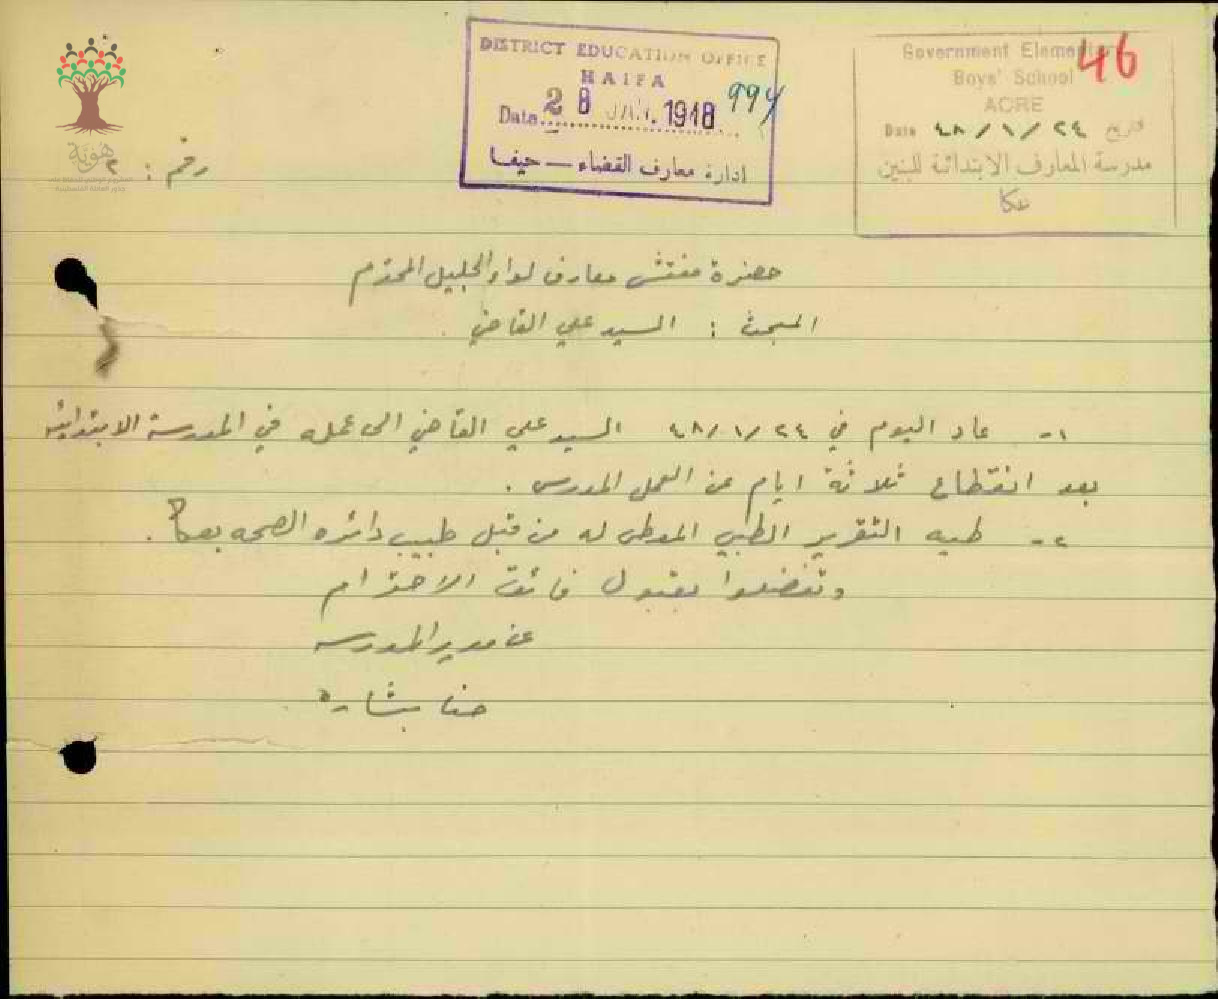 DISTRICT EDUCATION OFFICE
HAIFA
Date 28 JAN. 1948
994
ادارة معارف القضاء — حيفا
Government Elementary
Boys' School
ACRE
Date ٤٨/١/٢٤ تاريخ
مدرسة المعارف الابتدائية للبنين
عكا
46
هوية
رقم : ٢
حضرة مفتش معارف لواء الجليل المحترم
المبحث : السيد علي القاضي
١- عاد اليوم في ٤٨/١/٢٤ السيد علي القاضي الى عمله في المدرسة الابتدائية
بعد انقطاع ثلاثة ايام عن العمل المدرسي .
٢- طيه التقرير الطبي المعطى له من قبل طبيب دائره الصحه بعكا .
وتفضلوا بقبول فائق الاحترام
عن مدير المدرسه
حنا بشاره